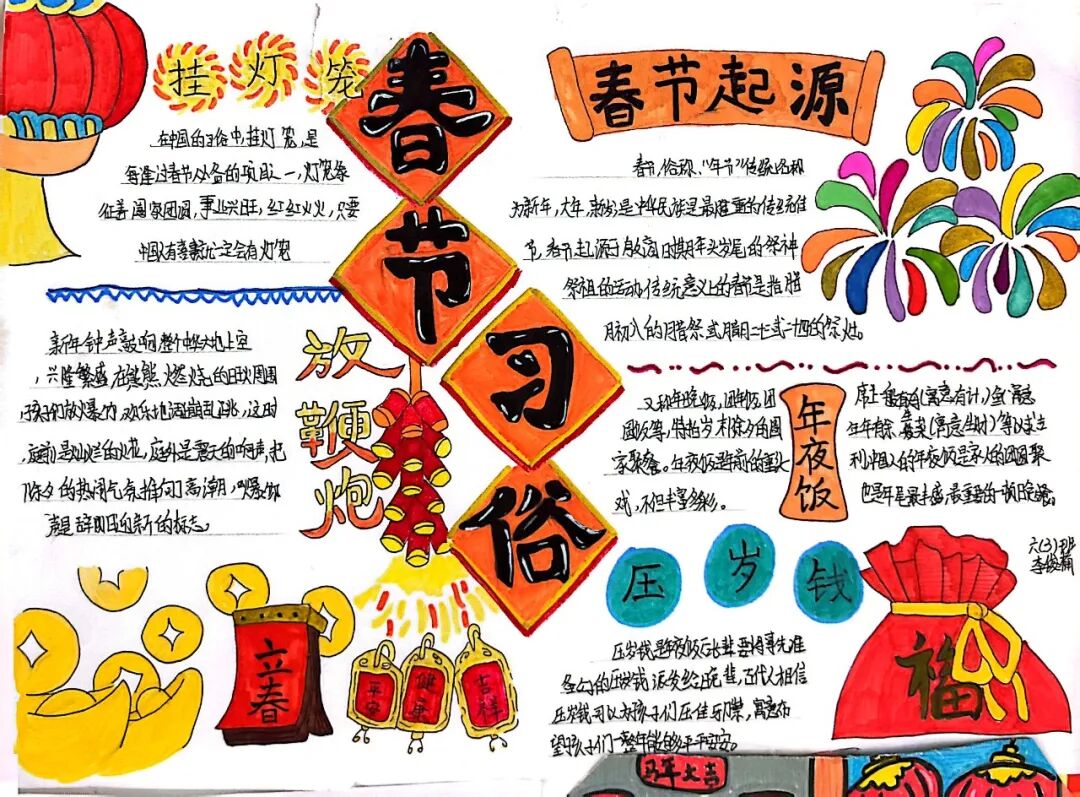 挂灯笼
在中国的习俗中,挂灯笼,是
每逢过春节必备的项目之一,灯笼象
征着国家团圆,事业兴旺,红红火火,只要
中国人有喜就一定会有灯笼
春节习俗
春节起源
春节,俗称“年节”传统名称
为新年,大年,新岁是中华民族最隆重的传统佳
节,春节起源于殷商时期年头岁尾的祭神
祭祖的活动,传统意义上的春节是指腊
月初八的腊祭或腊月二十三或二十四的祭灶。
放鞭炮
新年钟声敲响整个中华大地上空
,兴隆繁盛 在熊熊燃烧的旺火周围
孩子们放爆竹,欢乐地活蹦乱跳,这时
是灿烂的火花,庭外是震天的响声,把
除夕的热闹气氛推向了高潮,
是辞旧迎新的标志。
年夜饭
又称年晚饭,团年饭,团
圆饭等,特指岁末除夕的阖
家聚餐。年夜饭是年前的重头
戏,不但丰富多彩。
(寓意有计)鱼(寓意
年年有余 (寓意生财)等以求
利,中国人的年夜饭是家人的团圆聚
也是年尾最丰盛,最重要的一顿晚餐。
六(3)班
压岁钱
压岁钱是年夜饭后长辈要将事先准
备好的压岁钱派发给晚辈,古代人相信
压岁钱可以为孩子们压住邪祟,寓意
望孩子们一整年能够平平安安。
立春
平安
健康
吉祥
福
马年大吉